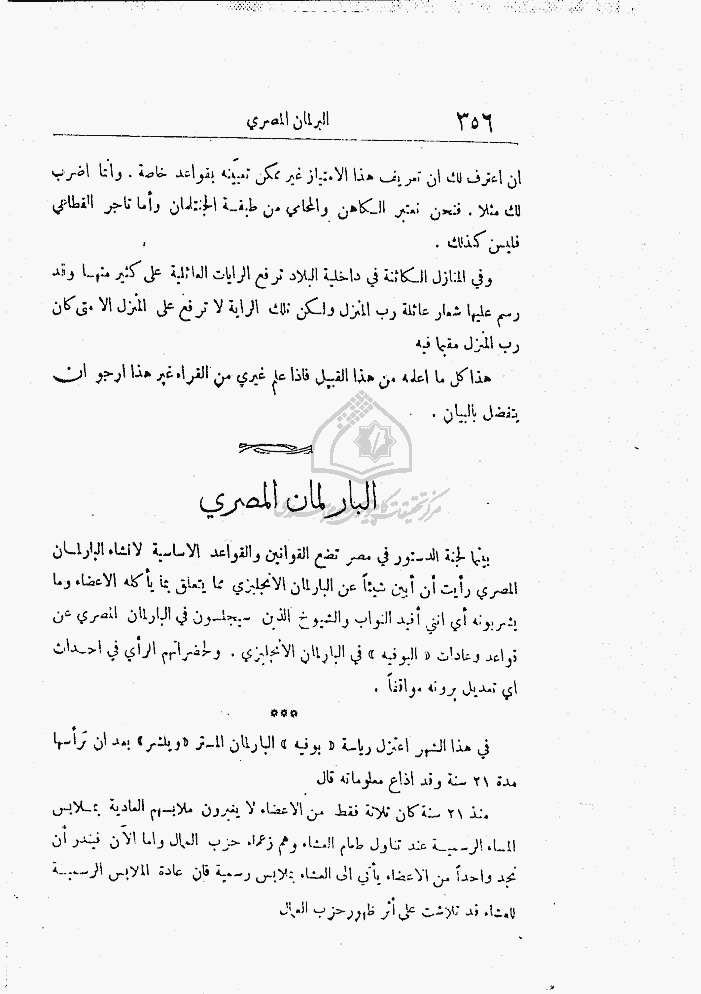 ٣٥٦
البرلمان المصري
ان اعترف لك ان تعريف هذا الامتياز غير ممكن تعيينه بقواعد خاصة . وانما اضرب
لك مثلا . فنحن نعتبر الكاهن والمحامي من طبقة الجنتلمان وأما تاجر القطاعي
فليس كذلك .
وفي المنازل الكائنة في داخلية البلاد ترفع الرايات العائلية على كثير منها وقد
رسم عليها شعار عائلة رب المنزل ولكن تلك الراية لا ترفع على المنزل الا متى كان
رب المنزل مقيما فيه
هذا كل ما اعلمه من هذا القبيل فاذا علم غيري من القراء غير هذا ارجو ان
يتفضل بالبيان .
البارلمان المصري
بينما لجنة الدستور في مصر تضع القوانين والقواعد الاساسية لانشاء البارلمان
المصري رأيت أن أبين شيئاً عن البارلمان الانجليزي مما يتعلق بما يأكله الاعضاء وما
يشربونه أي انني أفيد النواب والشيوخ الذين سيجلسون في البارلمان المصري عن
قواعد وعادات « البوفيه » في البارلمان الانجليزي . ولحضراتهم الرأي في احداث
اي تعديل يرونه موافقاً .
***
في هذا الشهر اعتزل رياسة « بوفيه » البارلمان المستر «ويلشر» بعد ان ترأسها
مدة ٢١ سنة وقد اذاع معلوماته قال
منذ ٢١ سنة كان ثلاثة فقط من الاعضاء لا يغيرون ملابسهم العادية بملابس
المساء الرسمية عند تناول طعام العشاء وهم زعماء حزب العمال واما الآن فيندر أن
نجد واحداً من الاعضاء يأتي الى العشاء بملابس رسمية فان عادة الملابس الرسمية
للعشاء قد تلاشت على أثر ظهور حزب العمال